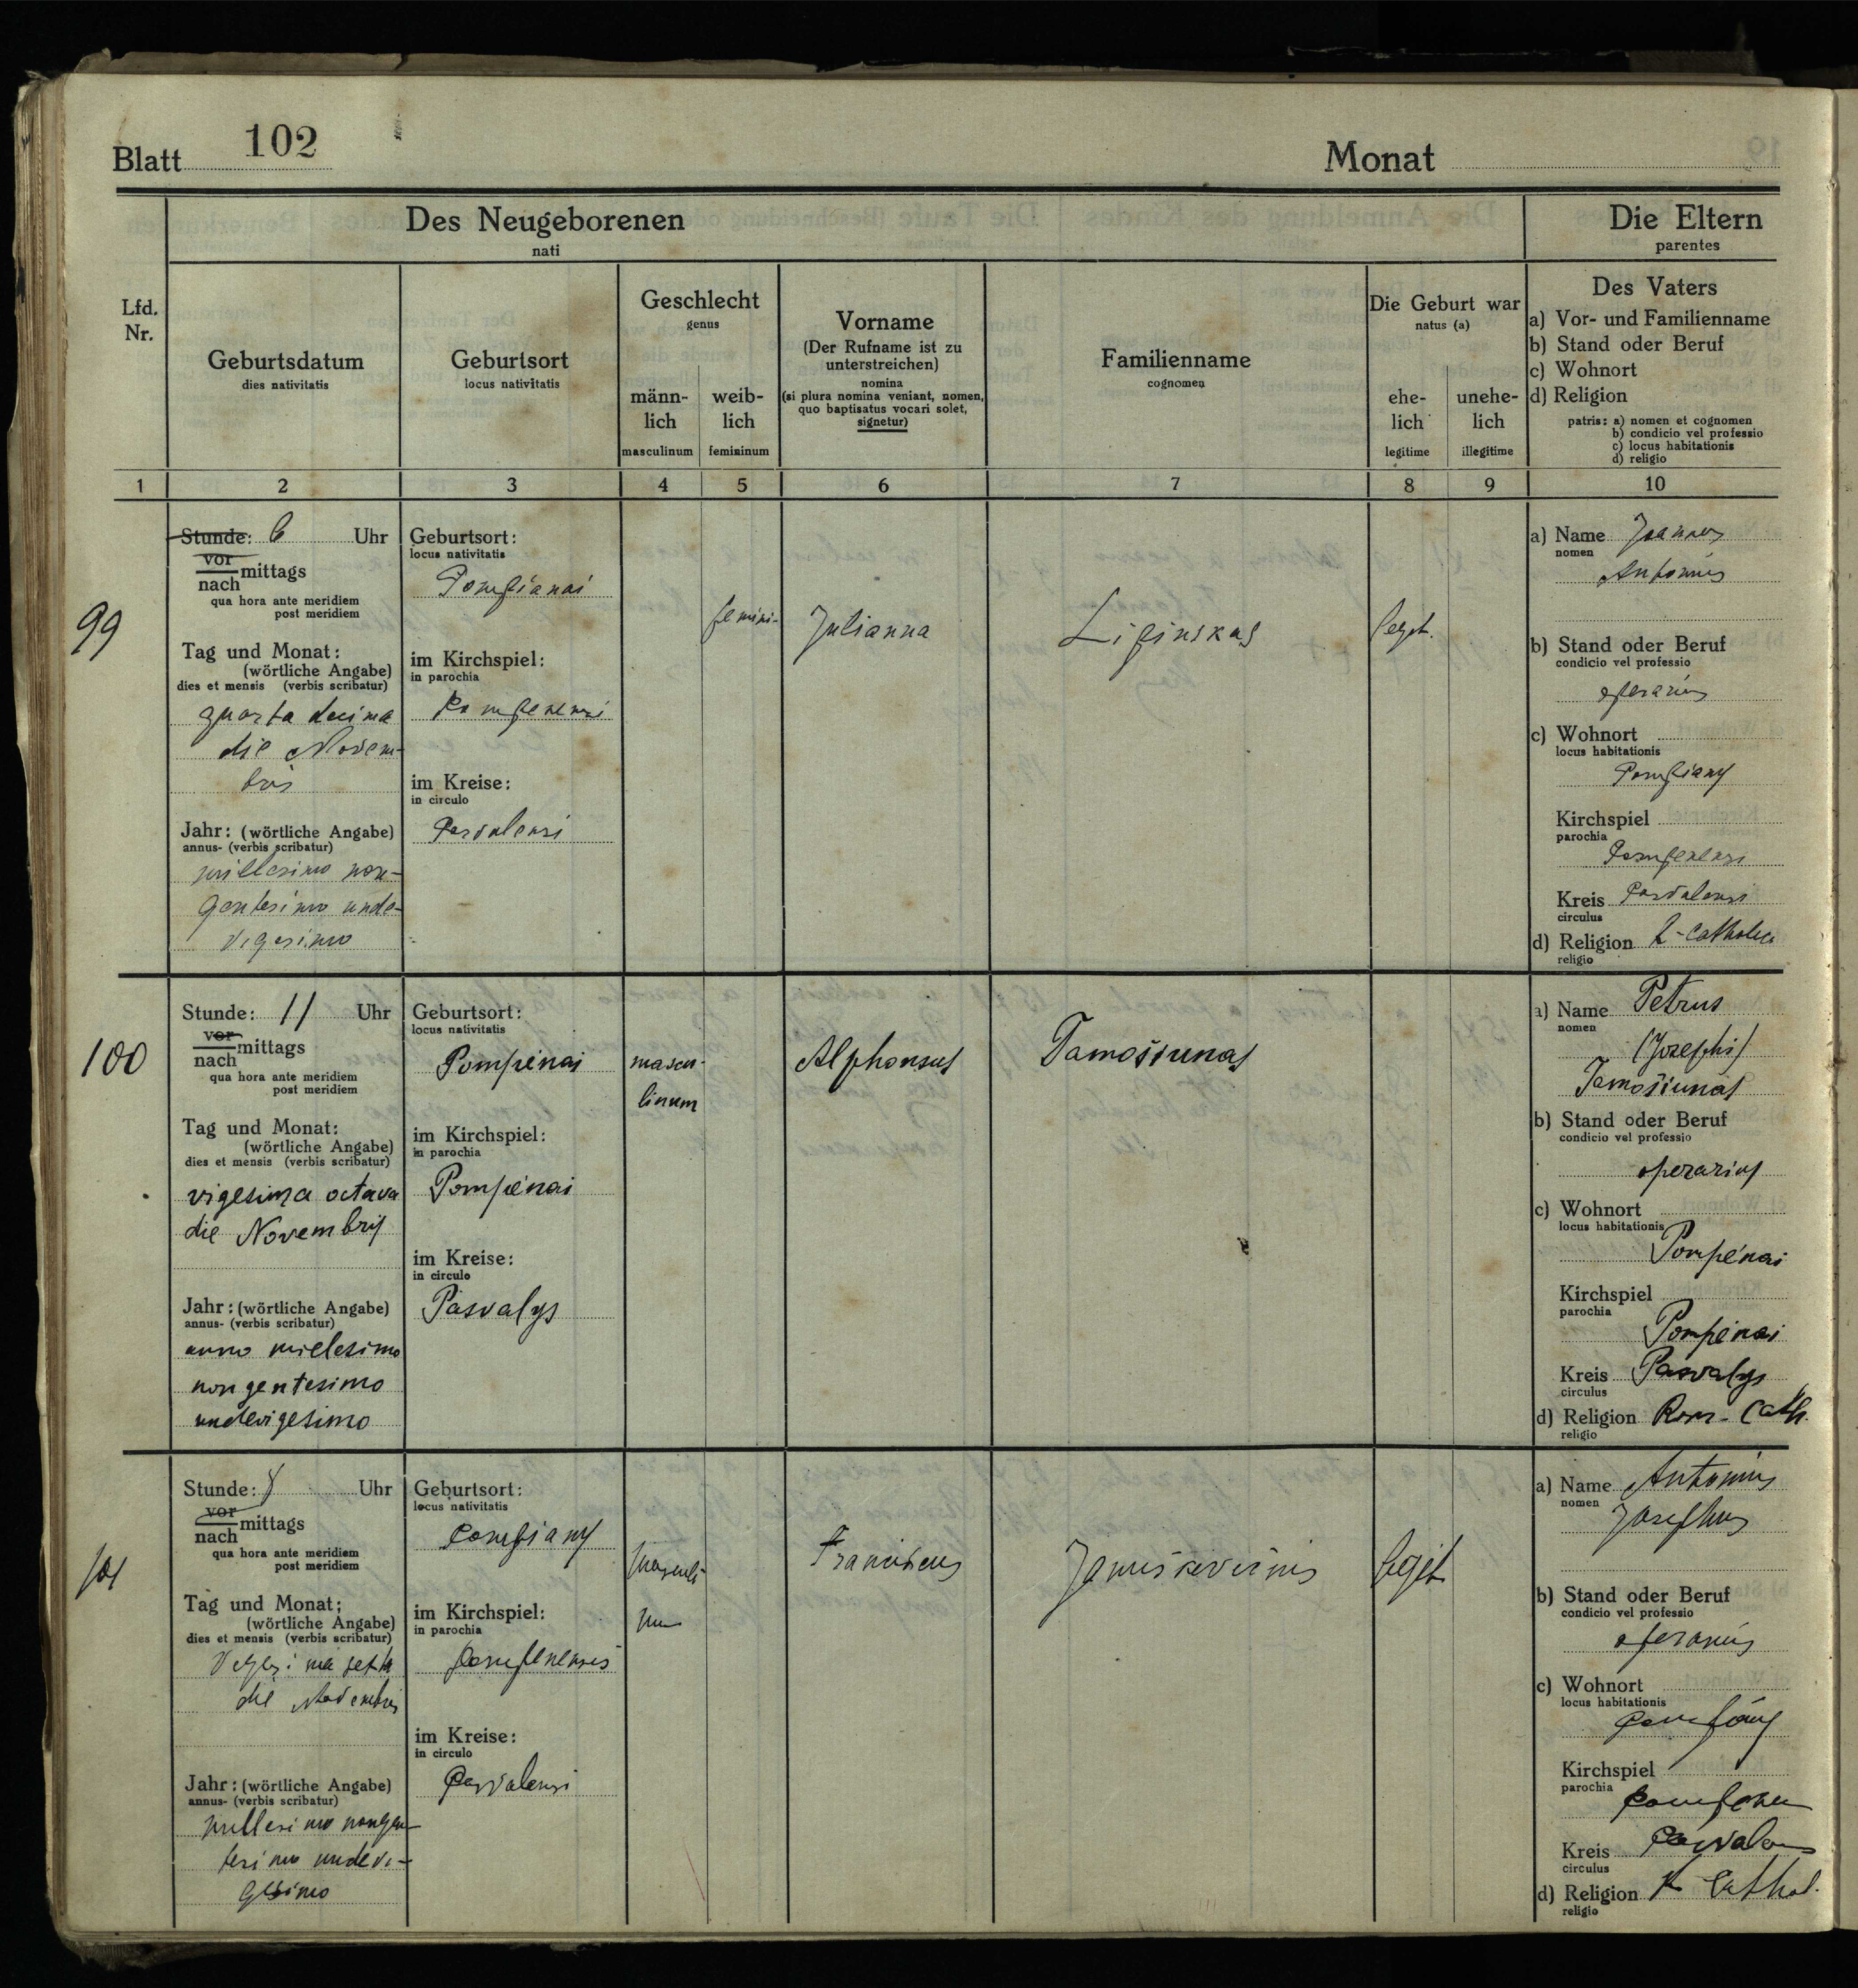 Blatt 102
Monat
Des Neugeborenen
nati
Die Eltern
parentes
Lfd.
Nr.
Geburtsdatum
dies nativitatis
Geburtsort
locus nativitatis
Geschlecht
genus
männ-
lich
masculinum
weib-
lich
femininum
Vorname
(Der Rufname ist zu
unterstreichen)
nomina
(si plura nomina veniant, nomen,
quo baptisatus vocari solet,
signetur)
Familienname
cognomen
Die Geburt war
natus (a)
ehe-
lich
legitime
unehe-
lich
illegitime
Des Vaters
a) Vor- und Familienname
b) Stand oder Beruf
c) Wohnort
d) Religion
patris: a) nomen et cognomen
b) condicio vel professio
c) locus habitationis
d) religio
1 2 3 4 5 6 7 8 9 10
99
Stunde: 6 Uhr
vor
nach mittags
qua hora ante meridiem
post meridiem
Tag und Monat:
(wörtliche Angabe)
dies et mensis (verbis scribatur)
quarta decima
die Novem-
bris
Jahr: (wörtliche Angabe)
annus- (verbis scribatur)
millesimo non-
gentesimo unde-
vigesimo
Geburtsort:
locus nativitatis
Pompianai
im Kirchspiel:
in parochia
Pompenensi
im Kreise:
in circulo
Pasvalensi
femini-
Julianna
Lipinskas
legit.
a) Name Joannes
nomen
Antonius
b) Stand oder Beruf
condicio vel professio
operarius
c) Wohnort
locus habitationis
Pompiany
Kirchspiel
parochia
Pompenensi
Kreis Pasvalensi
circulus
d) Religion R-Catholica
religio
100
Stunde: 11 Uhr
vor
nach mittags
qua hora ante meridiem
post meridiem
Tag und Monat:
(wörtliche Angabe)
dies et mensis (verbis scribatur)
vigesima octava
die Novembris
Jahr: (wörtliche Angabe)
annus- (verbis scribatur)
anno millesimo
nongentesimo
undevigesimo
Geburtsort:
locus nativitatis
Pompėnai
im Kirchspiel:
in parochia
Pompėnai
im Kreise:
in circulo
Pasvalys
mascu-
linum
Alphonsus
Tamošiunas
a) Name Petrus
nomen
(Josephi)
Tamošiunas
b) Stand oder Beruf
condicio vel professio
operarius
c) Wohnort
locus habitationis
Pompėnai
Kirchspiel
parochia
Pompėnai
Kreis Pasvalys
circulus
d) Religion Rom-Cath.
religio
101
Stunde: 8 Uhr
vor
nach mittags
qua hora ante meridiem
post meridiem
Tag und Monat:
(wörtliche Angabe)
dies et mensis (verbis scribatur)
die Novembris
Jahr: (wörtliche Angabe)
annus- (verbis scribatur)
millesimo nongen-
tesimo undevi-
gesimo
Geburtsort:
locus nativitatis
Pompiany
im Kirchspiel:
in parochia
Pompenensis
im Kreise:
in circulo
Pasvalensi
masculi-
num
Franciscus
legit
a) Name Antonius
nomen
Josephus
b) Stand oder Beruf
condicio vel professio
operarius
c) Wohnort
locus habitationis
Pompiany
Kirchspiel
parochia
Kreis
circulus
d) Religion R Cathol.
religio